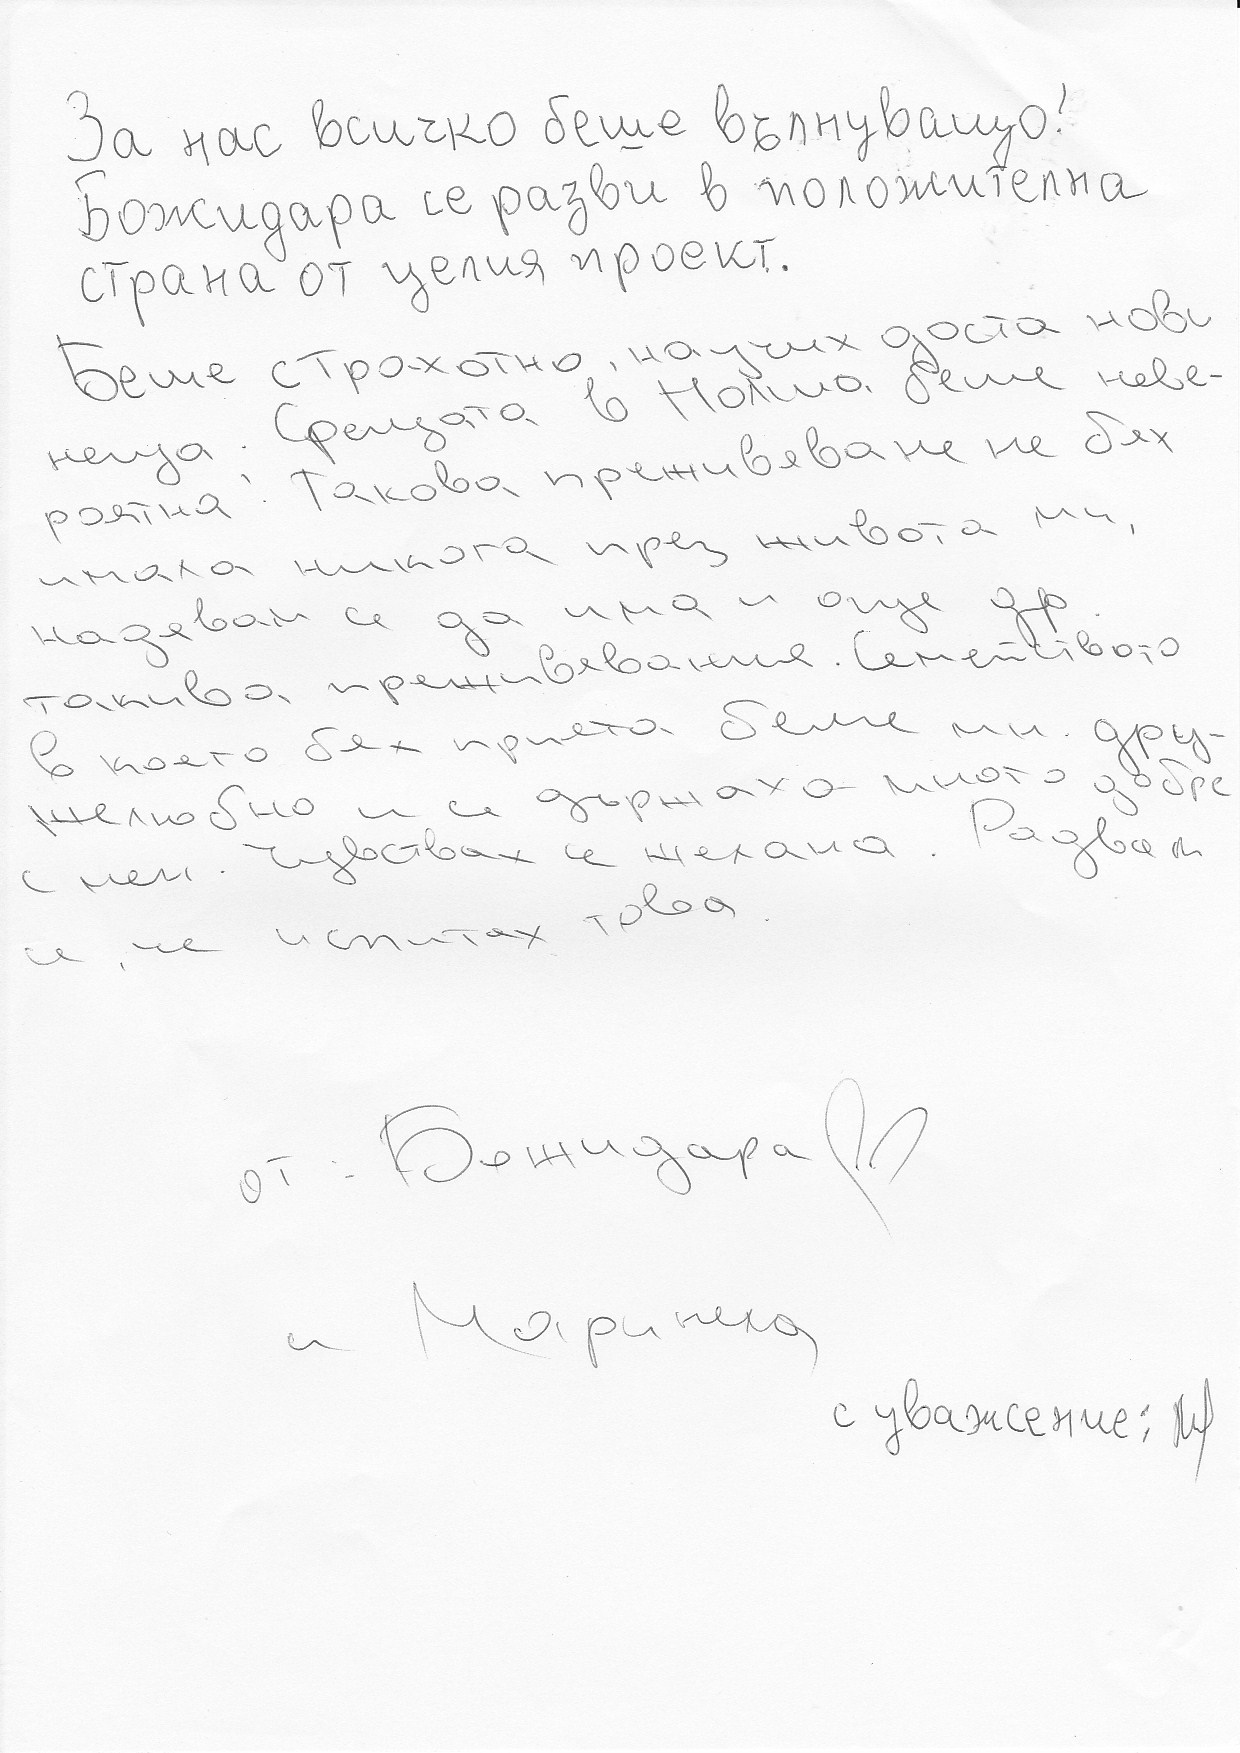 За нас всичко беше вълнуващо!
Божидара се разви в положителна
страна от целия проект.
Беше страхотно, научих доста нови
неща. Срещата в беше неве-
роятна! Такова преживяване не бях
имала никога през живота ми,
надявам се да има и още др.
такива преживявания. Семейството
в което бях приета беше мн. дру-
желюбно и се държаха много добре
с мен. Чувствах се желана. Радвам
се, че изпитах това.
от: Божидара
и Маринела
с уважение: